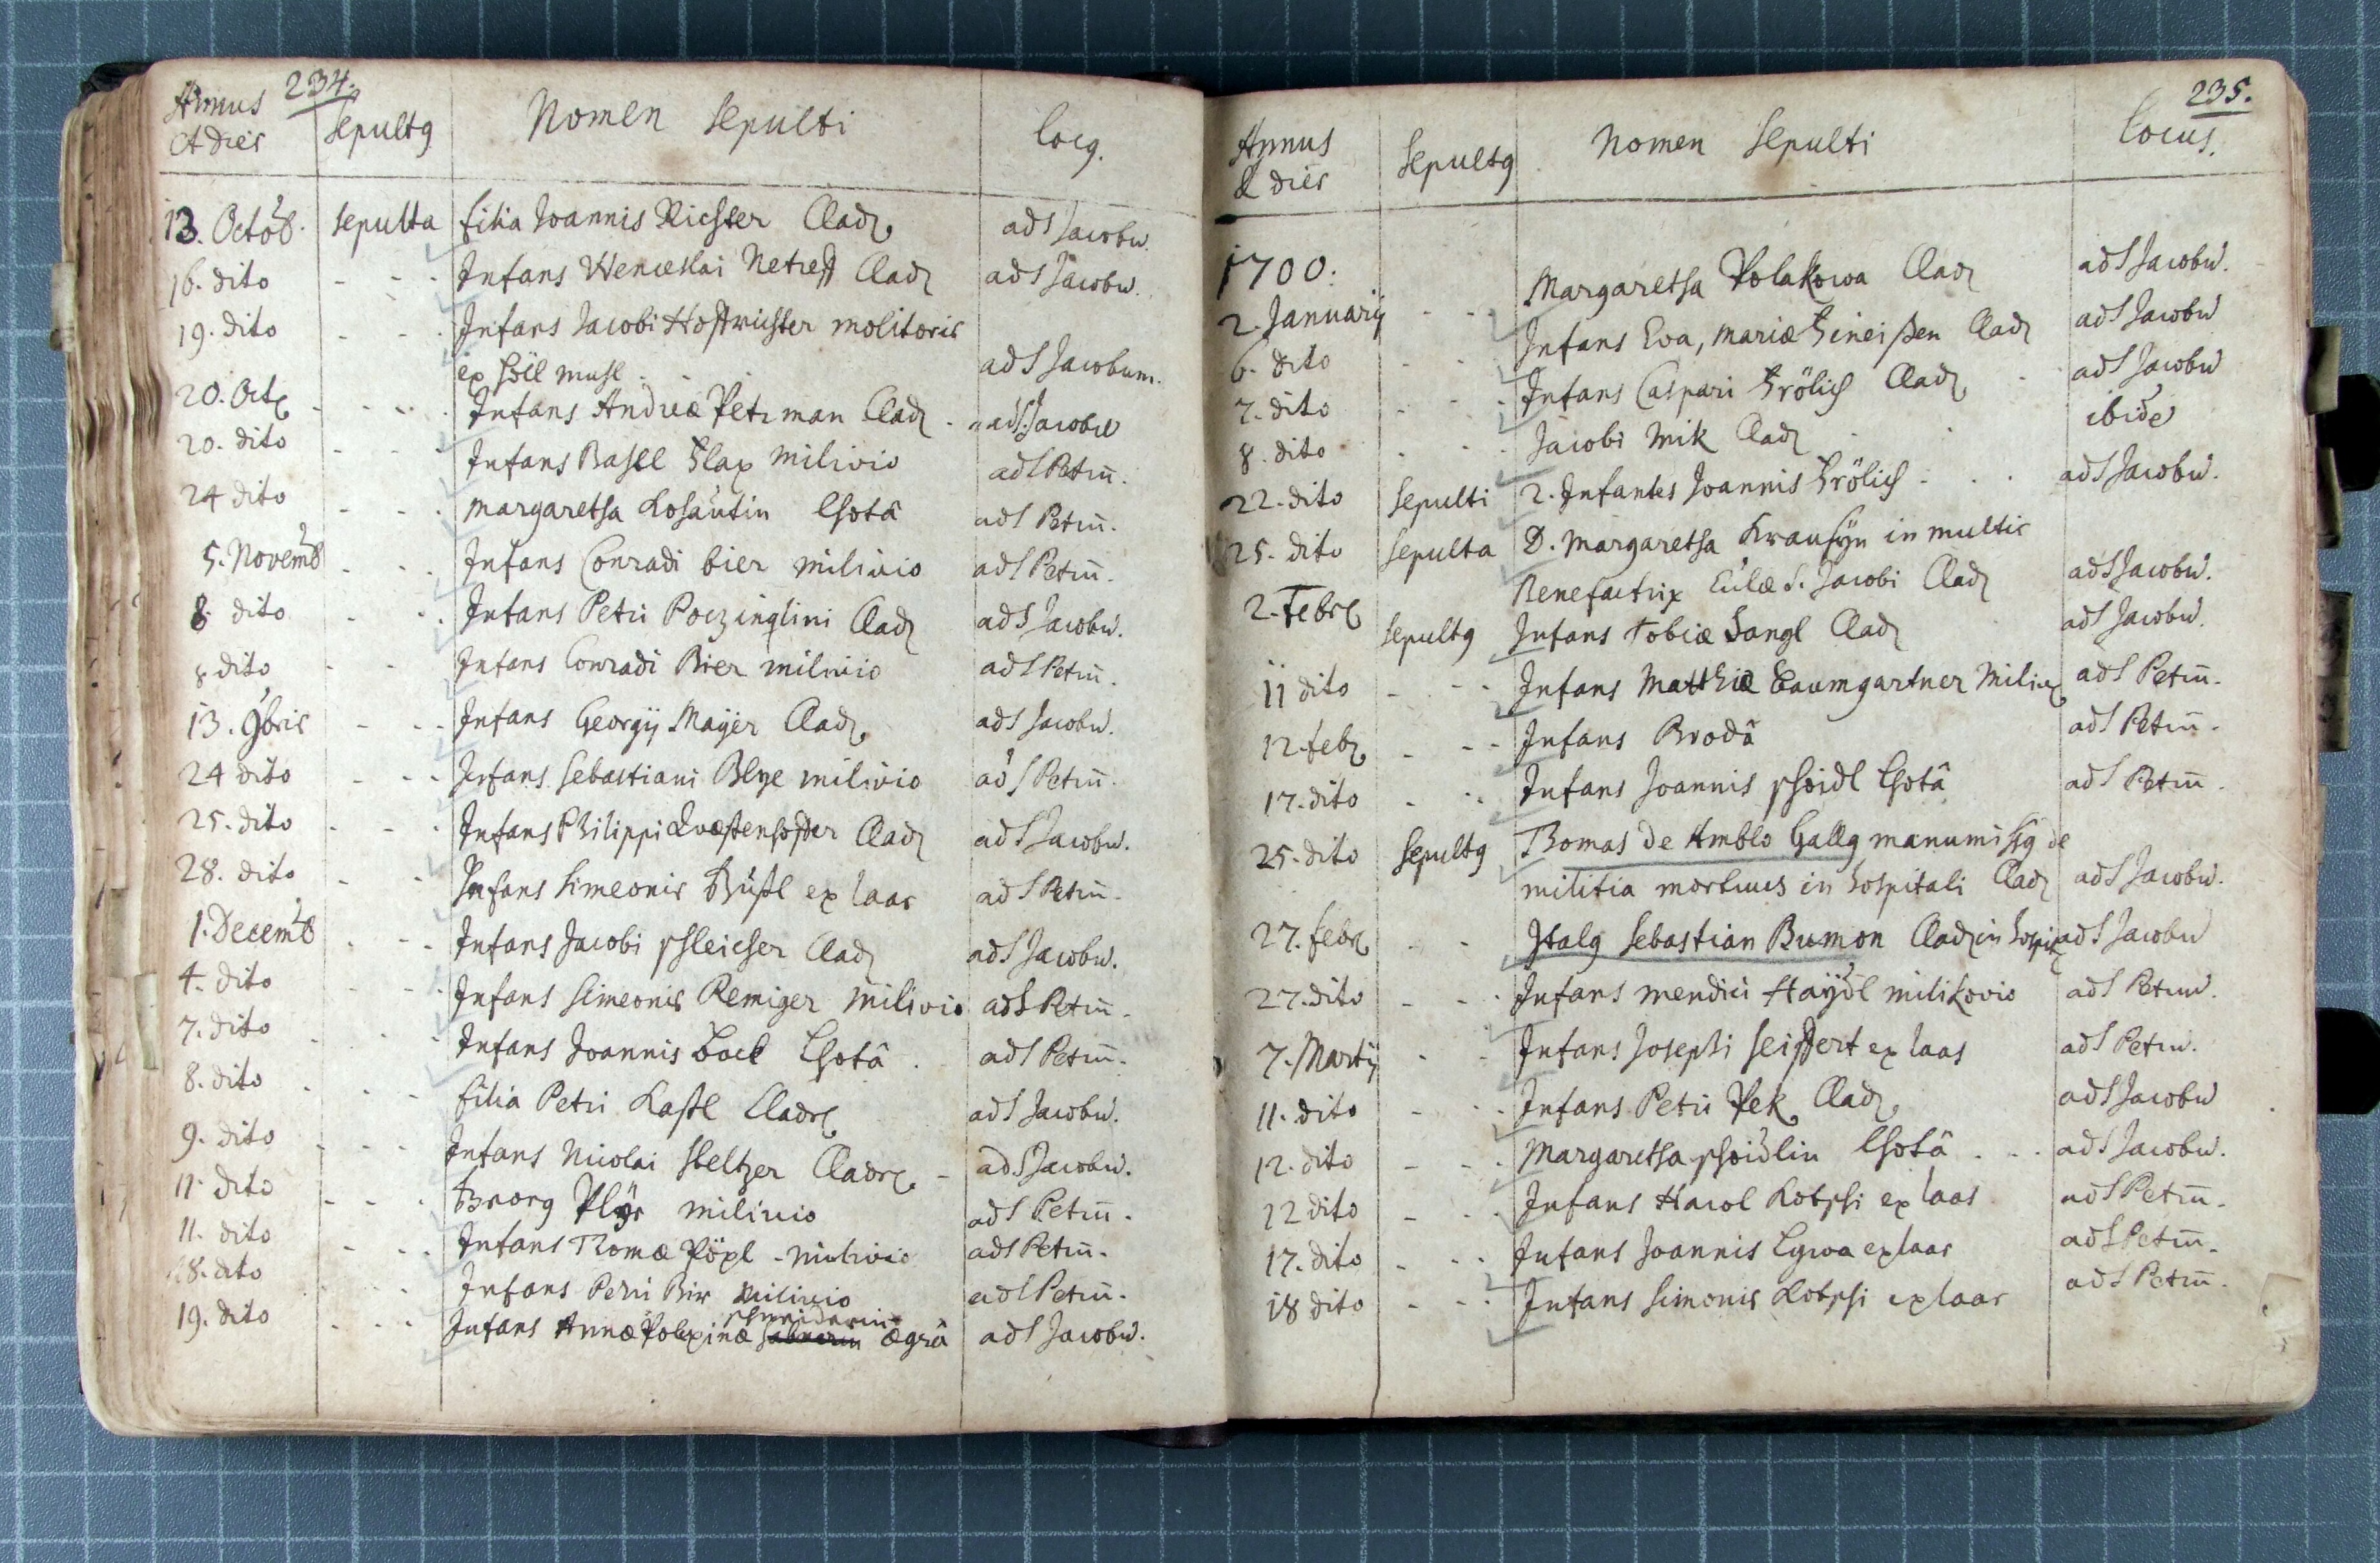 234.
Annus et dies sepultg Nomen sepulti locg.
13. Octob. sepulta filia Joannis Richter Clad. ad S Jacobu.
16. dito - - - Infans Wenceslai Clad. ad S Jacobu.
19. dito - - - Infans Jacobi molitoris
ex höll muhl - ad S Jacobum.
20. Oct. - - - Infans Andreæ Petzman Clad. - ad S. Jacobu
20. dito - - - Infans Basll Milivio ad S Petrū.
24 dito - - - Margaretha Lhotâ ad S Petrū.
5. Novemb - - - Infans Conradi bier milivio ad S Petrū.
8. dito - - - Infans Petri Poczinglini Clad. ad S Jacobu.
8 dito - - Infans Conradi Bier milivio ad S Petrū.
13. 9bris - - - Infans Georgij Mayer Clad. ad S Jacobu.
24 dito - - - Infans Sebastiani Blye milivio ad S Petrū.
25. dito - - - Infans Philippi Clad. ad S Jacobu.
28. dito - - Infans Simeonis ex laas ad S Petrū.
1. Decemb - - - Infans Jacobi Schleicher Clad. ad S Jacobu.
4. dito - - - Infans Simeonis Remiger Milivio ad S Petrū.
7. dito - - - Infans Joannis Lhotâ. ad S Petrū.
8. dito - - - filia Petri Kastl Cladr. ad S Jacobu.
9. dito - - - Infans Nicolai Steltzer Cladr. - ad S Jacobu.
11. dito - - - milivio ad S Petrū.
11. dito - - - Infans Thomæ Pöpl - milivio ad S Petrū.
18. dito - - - Infans Petri Bir Milivio ad S Petrū.
schneiderin
19. dito - - - Infans Annæ Polexinæ Ægrâ ad S Jacobu.
235.
Annus & dies Sepultg Nomen Sepulti locus.
1700.
2. Januarij - - - Margaretha Polakowa Clad. ad S Jacobu.
6. dito - - Infans Eva, Mariæ Clad. ad S Jacobu
7. dito - - - Infans Caspari Frölich Clad. - ad S Jacobu
8. dito - - - Jacobi Mik Clad. - - ibide
22. dito sepulti 2. Infantes Joannis Frölich - - - ad S Jacobu.
25. dito sepulta D. Margaretha Krausyn in multis
Benefactrix Eclæ S. Jacobi Clad. ad S Jacobu.
2. Febr. sepultg Infans Tobiæ Clad. ad S Jacobu.
11 dito - - - Infans Matthiæ Baumgartner Miliv. ad S Petrū.
12 feb. - - - Infans Brodâ ad S Petrū.
17. dito - - - Infans Joannis scheidl Lhotâ ad S Petrū.
25. dito sepultg Thomas de Amblo Gallg manumissg de
militia mortuus in hospitali Clad. ad S Jacobu.
27. feb. - - Italg Sebastian Bumon Clad. in hospit. ad S Jacobu
27. dito - - - Infans mendici Haydl milikovio ad S Petrum.
7. Martij - - Infans Josephi Seiffert ex laas ad S Petru.
11. dito - - - Infans Petri Pek Clad. ad S Jacobu
12. dito - - - Margaretha schoidlin Lhotâ - - - ad S Jacobu.
12 dito - - - Infans Havol Kotzhi ex laas ad S Petrū.
17. dito - - - Infans Joannis ex laas ad S Petrū.
18 dito - - - Infans Simonis Kotzhi ex laas ad S Petrū.